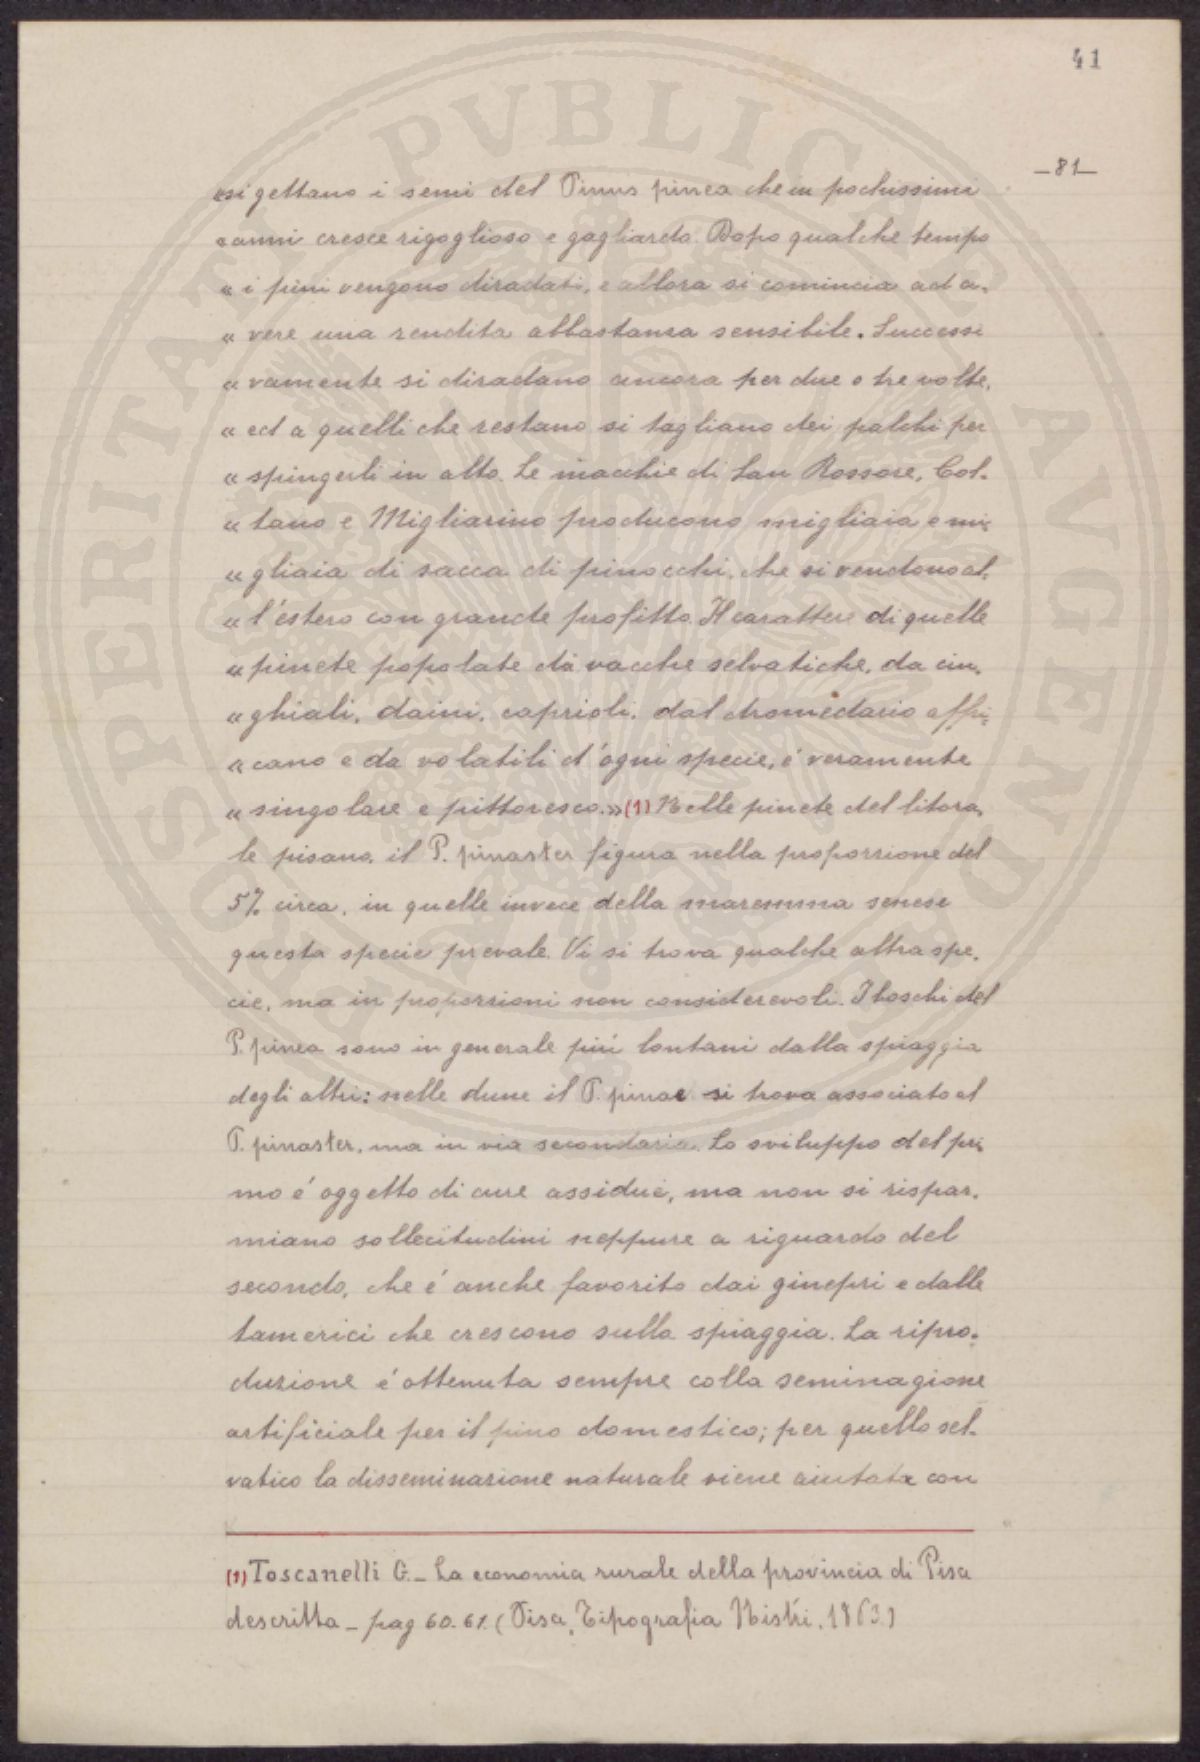 41
—81—
«si gettano i semi del Pinus pinea che in pochissimi
«anni cresce rigoglioso e gagliardo. Dopo qualche tempo
« i pini vengono diradati, e allora si comincia ad a-
« vere una rendita abbastanza sensibile. Successi
« vamente si diradano ancora per due o tre volte,
« ed a quelli che restano si tagliano dei palchi per
« spingerli in alto. Le macchie di San Rossore, Col-
« tano e Migliarino producono migliaia e mi-
« gliaia di sacca di pinocchi, che si vendono al-
« l'estero con grande profitto. Il carattere di quelle
« pinete popolate da vacche selvatiche, da cin-
« ghiali, daini, caprioli, dal dromedario affri-
« cano e da volatili d'ogni specie, é veramente
« singolare e pittoresco.» (1) Nelle pinete del litora-
le pisano, il P. pinaster figura nella proporzione del
5% circa, in quelle invece della maremma senese
questa specie prevale. Vi si trova qualche altra spe-
cie, ma in proporzioni non considerevoli. I boschi del
P. pinea sono in generale più lontani dalla spiaggia
degli altri: nelle dune il P. pinae si trova associato al
P. pinaster, ma in via secondaria. Lo sviluppo del pri-
mo é oggetto di cure assidue, ma non si rispar-
miano sollecitudini neppure a riguardo del
secondo, che é anche favorito dai ginepri e dalle
tamerici che crescono sulla spiaggia. La ripro-
duzione é ottenuta sempre colla seminagione
artificiale per il pino domestico; per quello sel-
vatico la disseminazione naturale viene aiutata con
(1) Toscanelli G. — La economia rurale della provincia di Pisa
descritta — pag 60-61. (Pisa, Tipografia Nistri, 1863)
PROSPERITATI PVBLICAE AVGENDAE